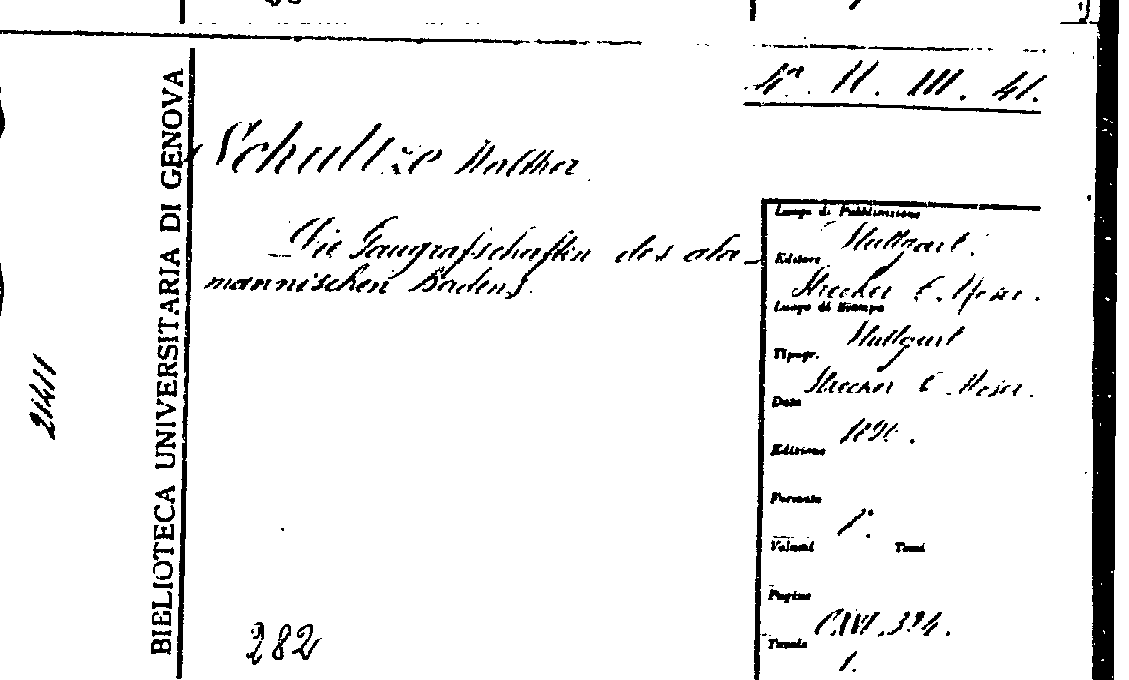 4ª. II. III. 41.
BIBLIOTECA UNIVERSITARIA DI GENOVA
Schultze Walther
Die Gaugrafschaften des ala-
mannischen Badens.
Luogo di Pubblicazione
Stuttgart.
Editore
Strecker & Moser.
Luogo di Stampa
Stuttgart
Tipogr.
Strecker & Moser.
Data
1896.
Edizione
Formato
Volumi Tomi
Pagine
Tavole
1.
282
21411